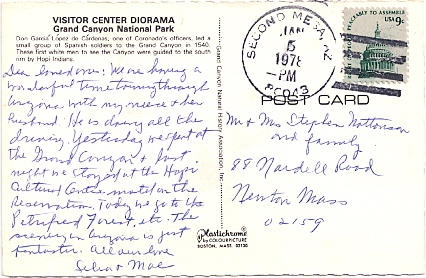 VISITOR CENTER DIORAMA
Grand Canyon National Park
Don García López de Cárdenas, one of Coronado's officers, led a
small group of Spanish soldiers to the Grand Canyon in 1540.
These first white men to see the Canyon were guided to the south
rim by Hopi Indians.
Dear loved ones: We are having a
wonderful time touring through
Arizona with my niece & her
husband. He is doing all the
driving. Yesterday we spent at
the Grand Canyon & last
night we stayed at the Hopi
Cultural Center on the
Reservation. Today we go to the
Petrified Forest, etc. The
scenery in Arizona is just
fantastic. All our love
Selva & Mac
Grand Canyon Natural History Association, Inc.
Plastichrome
by COLOURPICTURE
BOSTON, MASS. 02130
SECOND MESA, AZ
JAN
5
1978
PM
86043
ASSEMBLY TO ASSEMBLE
USA 9c
POST CARD
Mr & Mrs Stephen
and family
88 Nardell Road
Newton Mass
02159